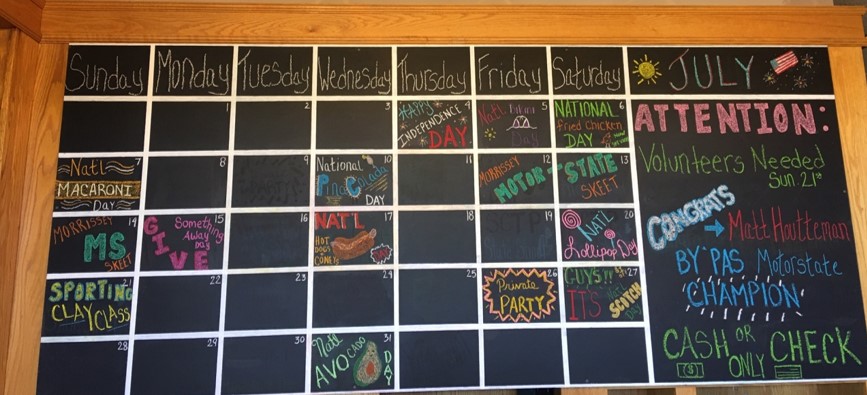 Sunday Monday Tuesday Wednesday Thursday Friday Saturday JULY
1 2 3 4 5 6
HAPPY
INDEPENDENCE
DAY
Natl Bikini
Day
NATIONAL
Fried Chicken
DAY
ATTENTION:
Volunteers Needed
Sun. 21st
7 8 9 10 11 12 13
Natl
MACARONI
Day
National
Pina Colada
DAY
MORRISSEY
MOTOR STATE
SKEET
14 15 16 17 18 19 20
MORRISSEY
MS
SKEET
GIVE
Something
Away
Day
NAT'L
HOT
DOG
CONEY
NAT'L
Lollipop Day
CONGRATS
→ Matt Houtteman
BY PAS Motorstate
CHAMPION
21 22 23 24 25 26 27
SPORTING
CLAY CLASS
Private
PARTY
GUYS!!
IT'S
NAT'L
SCOTCH
DAY
28 29 30 31
Natl
AVOCADO
DAY
CASH OR CHECK
ONLY